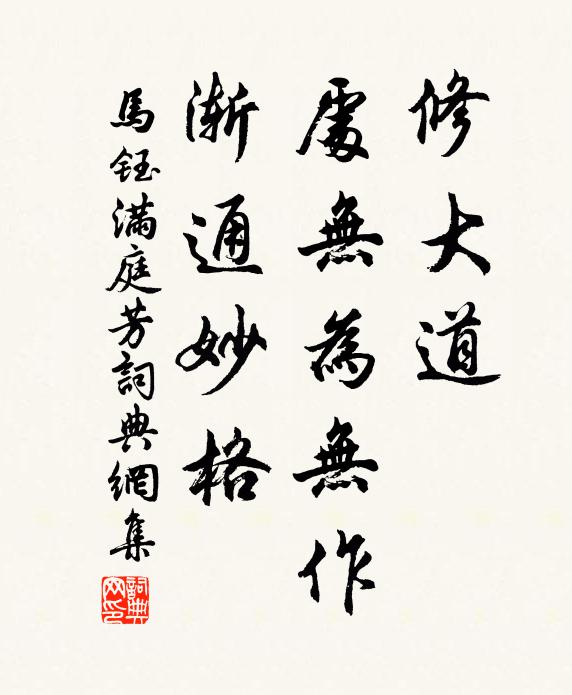 修大道
處無為無作
漸通妙格
馬鈺滿庭芳詞典網集
詞典網印